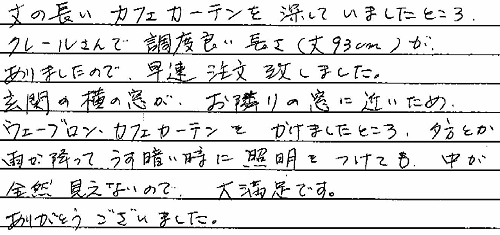 丈の長い カフェカーテンを 深して いましたところ、
クレールさんで 調度良い長さ(丈93cm)が、
ありましたので、早速 注文 致しました。
玄関の横の窓が、お隣りの窓に近いため、
ウェーブロン・カフェカーテンを かけましたところ、夕方とか
雨が降って うす暗い時に 照明を つけても、中が
全然 見えないので、大満足です。
ありがとう ございました。